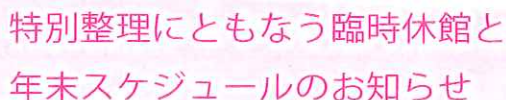 特別整理にともなう臨時休館と
年末スケジュールのお知らせ